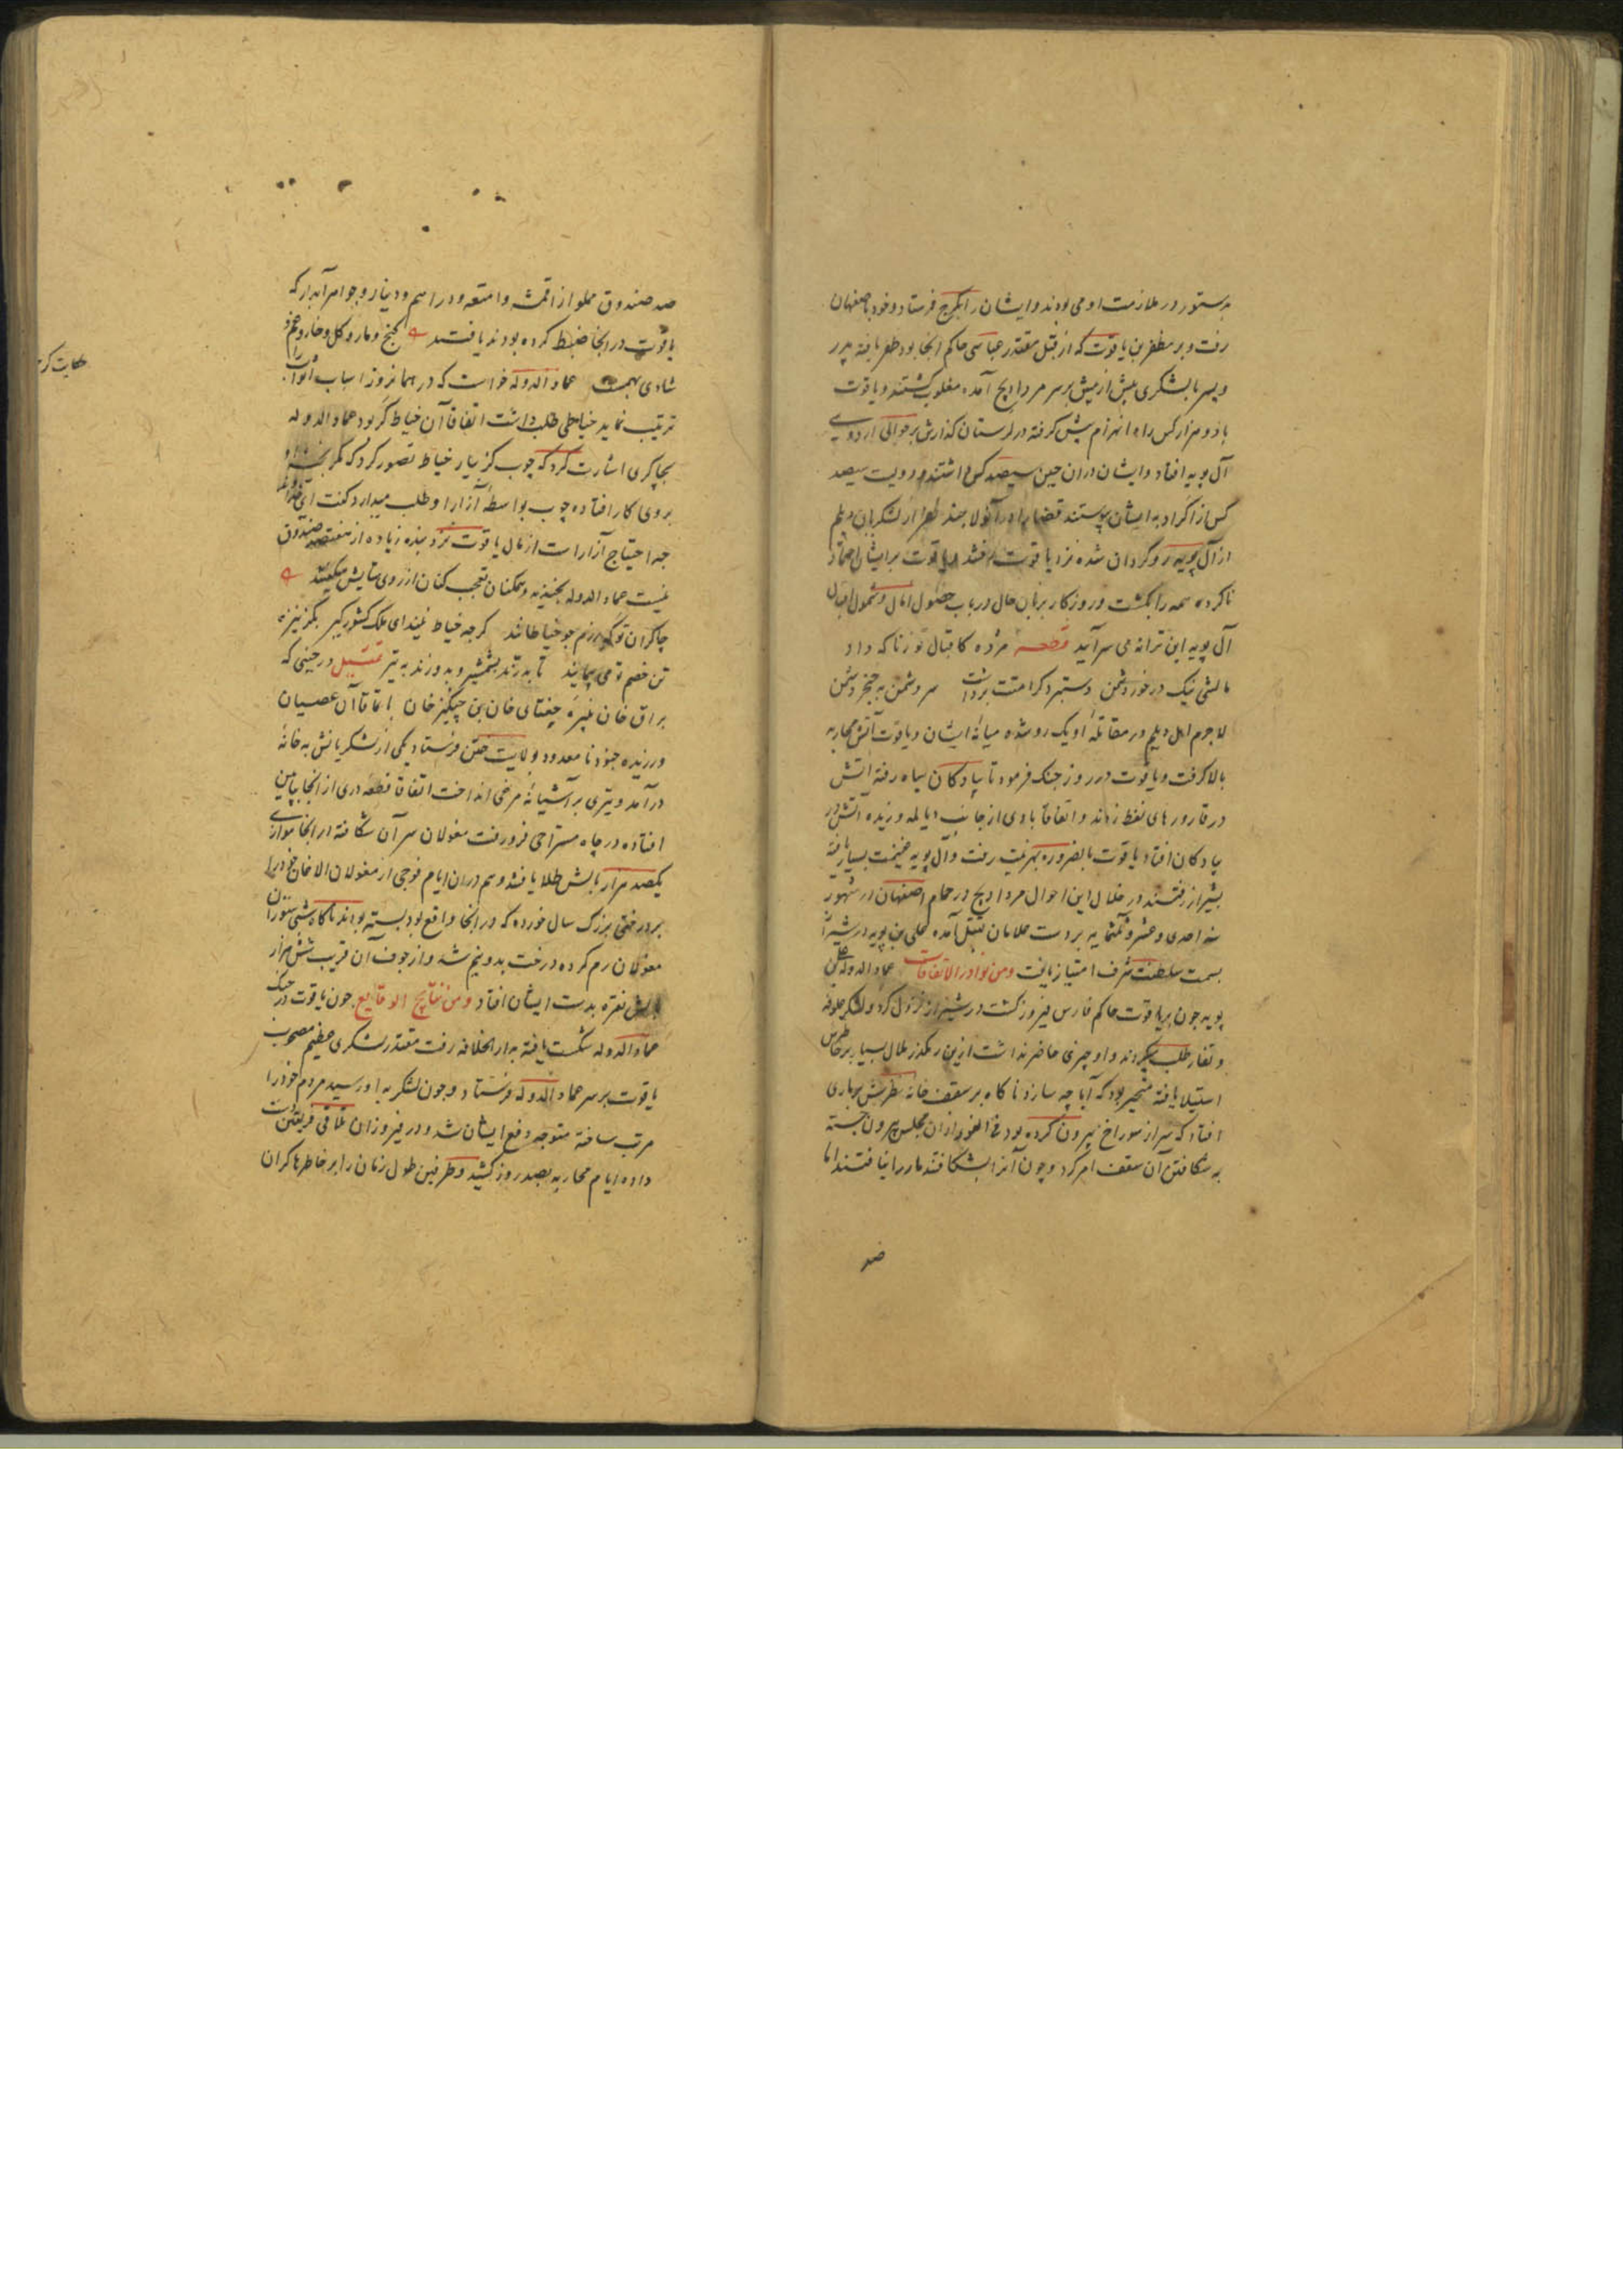 بدستور در ملازمت او می بودند و ایشان را بکرج فرستاد و خود باصفهان
رفت و بر مظفر بن یاقوت که از قبل مقتدر عباسی حاکم انجا بود ظفر یافته پدر
و پسر با لشکری بیش از پیش بر سر مرداویج آمده مغلوب کشتند و یاقوت
با دو هزار کس راه انهزام پیش کرفته در لرستان کذارش بر حوالی اردوی
آل بویه افتاد و ایشان دران حین سیصد کس داشتند و دویست سیصد
کس از اکراد به ایشان پیوستند قضا را در اول چند نفر از لشکریان دیلم
از آل بویه روکردان شده نزد یاقوت رفتند و یاقوت بر ایشان اعتماد
ناکرده همه را بکشت و روزکار بزبان حال در باب حصول امال و شمول اقبال
آل بویه این ترانه می سرآید قطعه مژده کاقبال تو زنا که داد
مالشی نیک در خور دشمن دستبرد کرامتت برداشت سر دشمن به خنجر دشمن
لاجرم اهل دیلم در مقاتله او یک رو شده میانه ایشان و یاقوت آتش محاربه
بالا کرفت و یاقوت در روز جنک فرمود تا پیادکان سپاه رفته اتش
در قارورهای نفط زدند و اتفاقا بادی از جانب دیالمه وزیده اتش در
پیادکان افتاد یاقوت بالضروره بهزیمت رفت و آل بویه غنیمت بسیار یافته
بشیراز رفتند در خلال این احوال مرداویج در حمام اصفهان در شهور
سنه احدی و عشر و ثلثمایه بر دست غلامان بقتل آمده علی بن بویه در شیراز
بسمت سلطنت شرف امتیاز یافت ومن نوادر الاتفاقات عماد الدوله علی بن
بویه چون بر یاقوت حاکم فارس فیروز کشت در شیراز نزول کرد و لشکر علوفه
و تغار طلب میکردند و او چیزی حاضر نداشت ازین رهکذر ملال بسیار بر خاطرش
استیلا یافته متحیر بود که آیا چه سازد ناکاه بر سقف خانه نظرش بر ماری
افتاد که سر از سوراخ بیرون کرده بود فی الفور از ان مجلس بیرون جسته
به شکافتن آن سقف امر کرد و چون آنرا بشکافتند مار را نیافتند اما
صد
صد صندوق مملو از اقمشه و امتعه و دراهم و دینار و جواهر آبدار که
یاقوت در انجا ضبط کرده بودند یافتند کنج و مار و کل و خار و غم و
شادی بهمست عماد الدوله خواست که در همانروز اسباب اثواب را
ترتیب نماید خیاطی طلب داشت اتفاقا آن خیاط کر بود عماد الدوله
بچاکری اشارت کرد که چوب کز بیار خیاط تصور کرد که مکر بخیه او
بروی کار افتاده چوب بواسطه آزار او طلب میدارد کفت ای خداوند
چه احتیاج آزارا ست از مال یاقوت نزد بنده زیاده از هفتصد صندوق
نیست عماد الدوله بخندید و همکنان تعجب کنان از روی ستایش میکفتند
چاکران تو که رزم چو خیاطانند کرچه خیاط نیند ای ملک کشور کیر بکز نیزه
تن خصم تو می پیمایند تا بدرند بشمشیر و بدوزند به تیر تمثیل در حینی که
براق خان نبیره چغتای خان بن چنکیز خان با بقا آن عصیان
ورزیده جنود نامعدود بولایت ختن فرستاد یکی از لشکریانش به خانه
درآمد و تیری بر آشیانه مرغی انداخت اتفاقا قطعه دری از انجا بپایین
افتاده در چاه مستراحی فرو رفت مغولان سر آن شکافته از انجا موازی
یکصد هزار بالش طلا یافتند و هم دران ایام فوجی از مغولان الاغان خود را
بر درختی بزرک سال خورده که در انجا واقع بود بسته بودند ناکاه شبی ستوران
مغولان رم کرده درخت بدو نیم شد و از جوف آن قریب شش هزار
بالش نقره بدست ایشان افتاد ومن نتایج الوقایع چون یاقوت در جنک
عماد الدوله شکست یافته بدار الخلافه رفت مقتدر لشکری عظیم مصحوب
یاقوت بر سر عماد الدوله فرستاد و چون لشکر به او رسید مردم خود را
مرتب ساخته متوجه دفع ایشان شد و در فیروزان تلاقی فریقین دست
داده ایام محاربه بصد روز کشید و طرفین طول زمان را بر خاطرها کران
حکایت کر